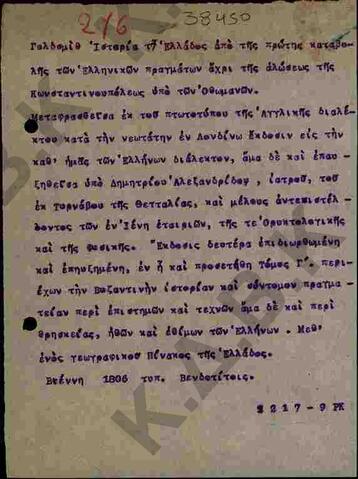 276
38450
Γολδσμίθ Ἱστορία τῆς Ἑλλάδος ἀπό τῆς πρώτης καταβο-
λῆς τῶν Ἑλληνικῶν πραγμάτων ἄχρι τῆς ἁλώσεως τῆς
Κωνσταντινουπόλεως ὑπό τῶν Ὀθωμανῶν.
Μεταφρασθεῖσα ἐκ τοῦ πτοτοτύπου τῆς Ἀγγλικῆς διαλέ-
κτου κατά τήν νεωτάτην ἐν Λονδίνῳ ἔκδοσιν εἰς τήν
καθ' ἡμᾶς τῶν Ἑλλήνων διάλεκτον, ἅμα δέ καί ἐπαυ-
ξηθεῖσα ὑπό Δημητρίου Ἀλεξανδρίδου, ἰατροῦ, τοῦ
ἐκ Τυρνάβου τῆς Θετταλίας, καί μέλους ἀντεπιστέλ-
λοντος τῶν ἐν Ἰένῃ ἑταιριῶν, τῆς τε Ὀρυκτολογικῆς
καί τῆς φυσικῆς. Ἔκδοσις δευτέρα ἐπιδιωρθωμένη
καί ἐπηυξημένη, ἐν ᾗ καί προσετέθη Τόμος Γ'. περι-
έχων τήν Βυζαντινήν ἱστορίαν καί σύντομον πραγμα-
τείαν περί ἐπιστημῶν καί τεχνῶν ἅμα δέ καί περί
θρησκείας, ἠθῶν καί ἐθίμων τῶν Ἑλλήνων. Μεθ'
ἑνός γεωγραφικοῦ Πίνακος τῆς Ἑλλάδος.
Βιέννη 1806 τυπ. Βενδοτίτοις.
2217-9 ΡΚ
Κ.Δ.Β.Κ